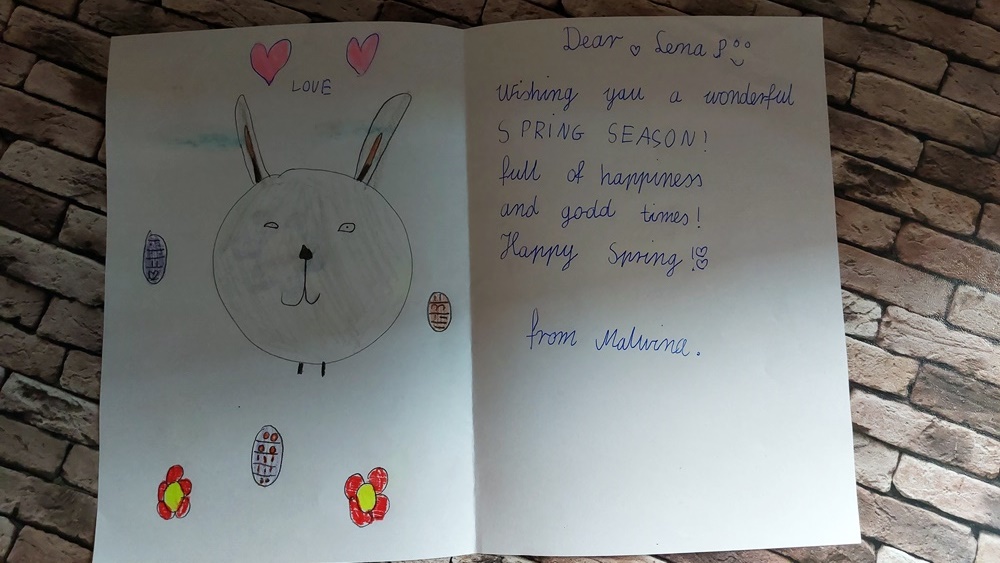 LOVE
Dear Lena
Wishing you a wonderful
SPRING SEASON!
full of happiness
and godd times!
Happy Spring!
from Malwina.